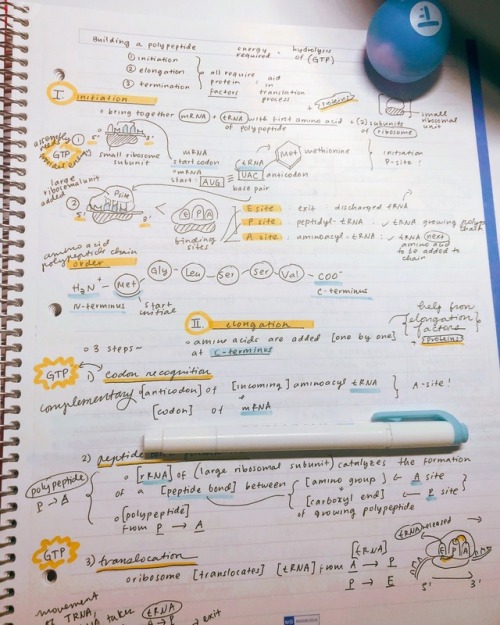 Building a polypeptide
energy required · hydrolysis of (GTP)
① initiation
② elongation
③ termination
all require protein factors : aid in translation process
I. initiation
° bring together mRNA + tRNA with first amino acid + (2) subunits of polypeptide of ribosome
small ribosomal unit
① GTP
5' 3'
small ribosome subunit
mRNA start codon
°mRNA start: AUG ≡ UAC anticodon
tRNA
base pair
Met methionine
initiation P-site!
large ribosomal unit added
②
P site
5' 3'
E P A
binding sites
E site : exit discharged tRNA
P site : peptidyl-tRNA : tRNA growing polypeptide chain
A site : aminoacyl-tRNA : tRNA next amino acid to be added to chain
amino acid polypeptide chain order
H₃N⁺ - Met - Gly - Leu - Ser - Ser - Val - COO⁻
N-terminus start initial
C-terminus
II. elongation
° amino acids are added [one by one] at C-terminus
help from [elongation factors] proteins
° 3 steps~
GTP
1) codon recognition
complementary [anticodon] of [incoming] aminoacyl tRNA
[codon] of mRNA
A-site!
2) peptide
° [rRNA] of (large ribosomal subunit) catalyzes the formation
of a [peptide bond] between [amino group] ← A site
[carboxyl end] ← P site
of growing polypeptide
polypeptide P → A
° [polypeptide] from P → A
GTP
3) translocation
° ribosome [translocates] [tRNA] from A → P
[tRNA] P → E
tRNA released
E P A
5' 3'
movement of tRNA,
taken tRNA A → P → exit